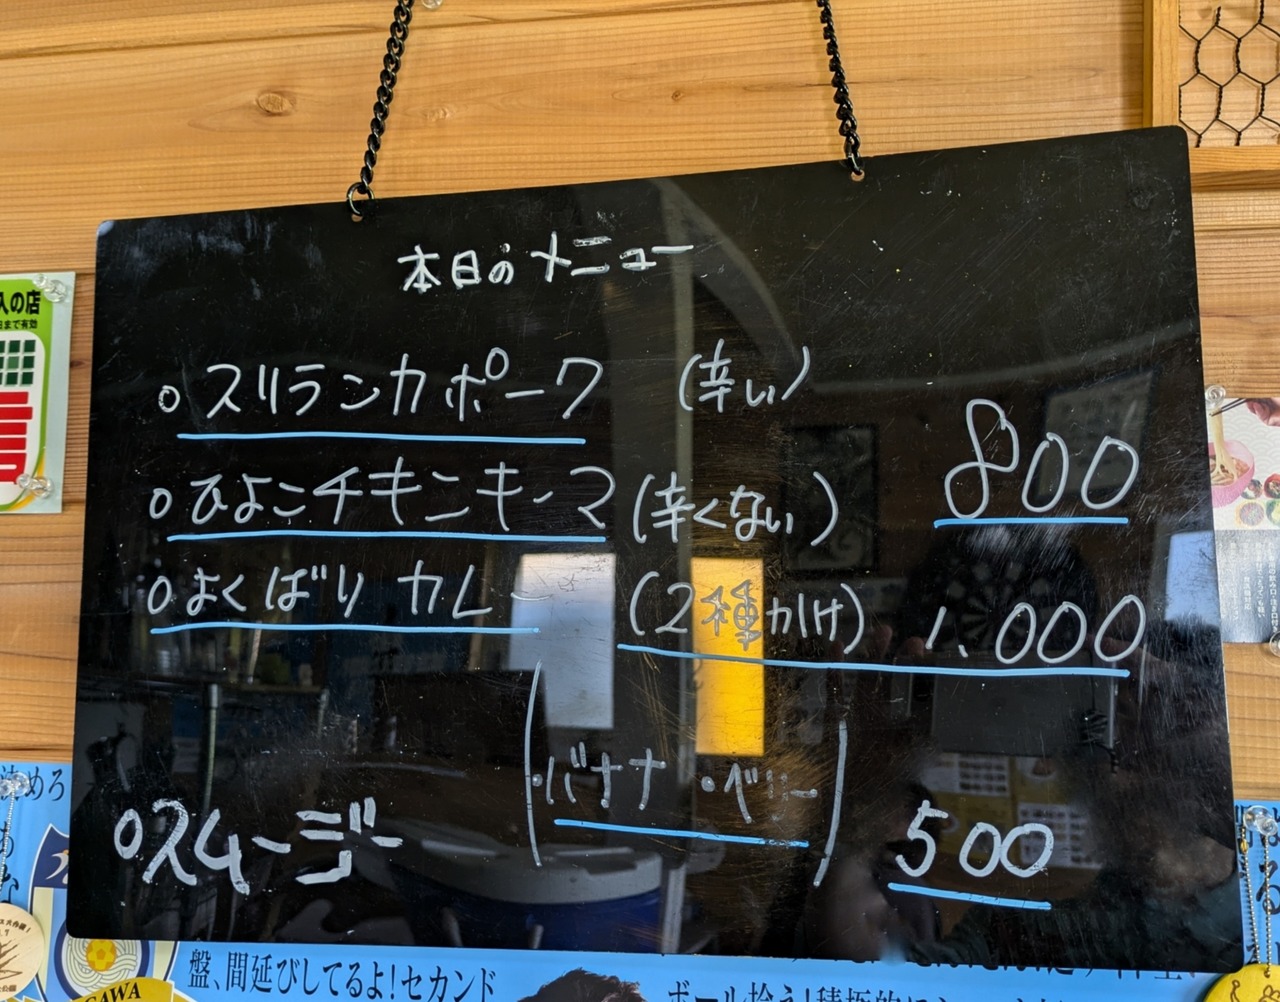 本日のメニュー
○スリランカポーク (辛い)
○ひよこチキンキーマ (辛くない) 800
○よくばりカレー (2種がけ) 1.000
○スムージー (・バナナ ・ベリー) 500
入の店
日まで有効
決めろ
盤、間延びしてるよ!セカンド
ボール拾え!積極的に
GAWA